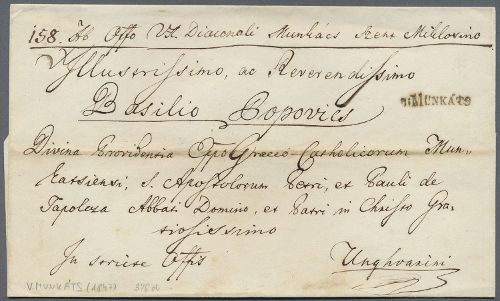 158. Ab Offo VA. Diaconali Munkács Szent Miklosino
Illustrissimo, ac Reverendissimo
Basilio Popovics
V.MUNKÁTS
Divina Providentia Eppo Graeco-Catholicorum Mun=
katsiensi, S. Apostolorum Petri, et Pauli de
Tapolcza Abbáti Domino, et Patri in Christo Gra-
tiosissimo
In serviese Offis
Unghvarini
V. MUNKÁTS (1847)